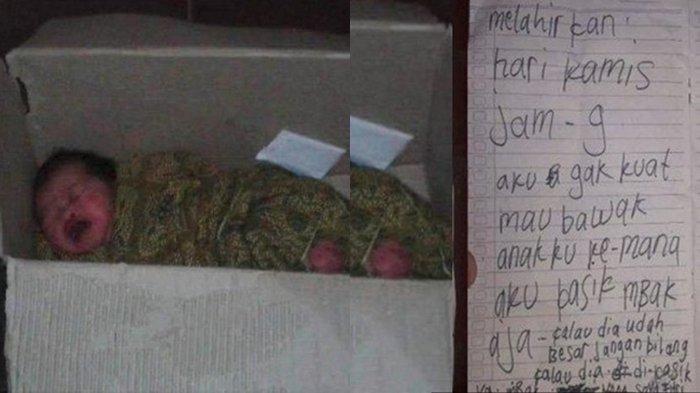 melahirkan :
hari kamis
jam - 9
aku gak kuat
mau bawak
anakku ke-mana
aku pasik mbak
aja - calau dia udah
Besar jangan bilang
calau dia di-pasik